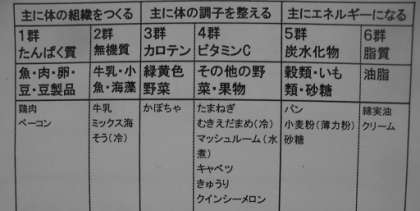 主に体の組織をつくる 主に体の調子を整える 主にエネルギーになる
1群 2群 3群 4群 5群 6群
たんぱく質 無機質 カロテン ビタミンC 炭水化物 脂質
魚・肉・卵・ 牛乳・小 緑黄色 その他の野 穀類・いも 油脂
豆・豆製品 魚・海藻 野菜 菜・果物 類・砂糖
鶏肉 牛乳 かぼちゃ たまねぎ パン 綿実油
ベーコン ミックス海 むきえだまめ(冷) 小麦粉(薄力粉) クリーム
そう(冷) マッシュルーム(水 砂糖
煮)
キャベツ
きゅうり
クインシーメロン